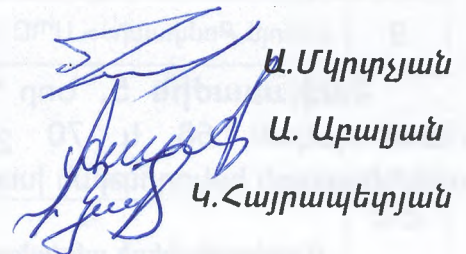 Ա.Մկրտչյան
Ա. Աբալյան
Կ.Հայրապետյան